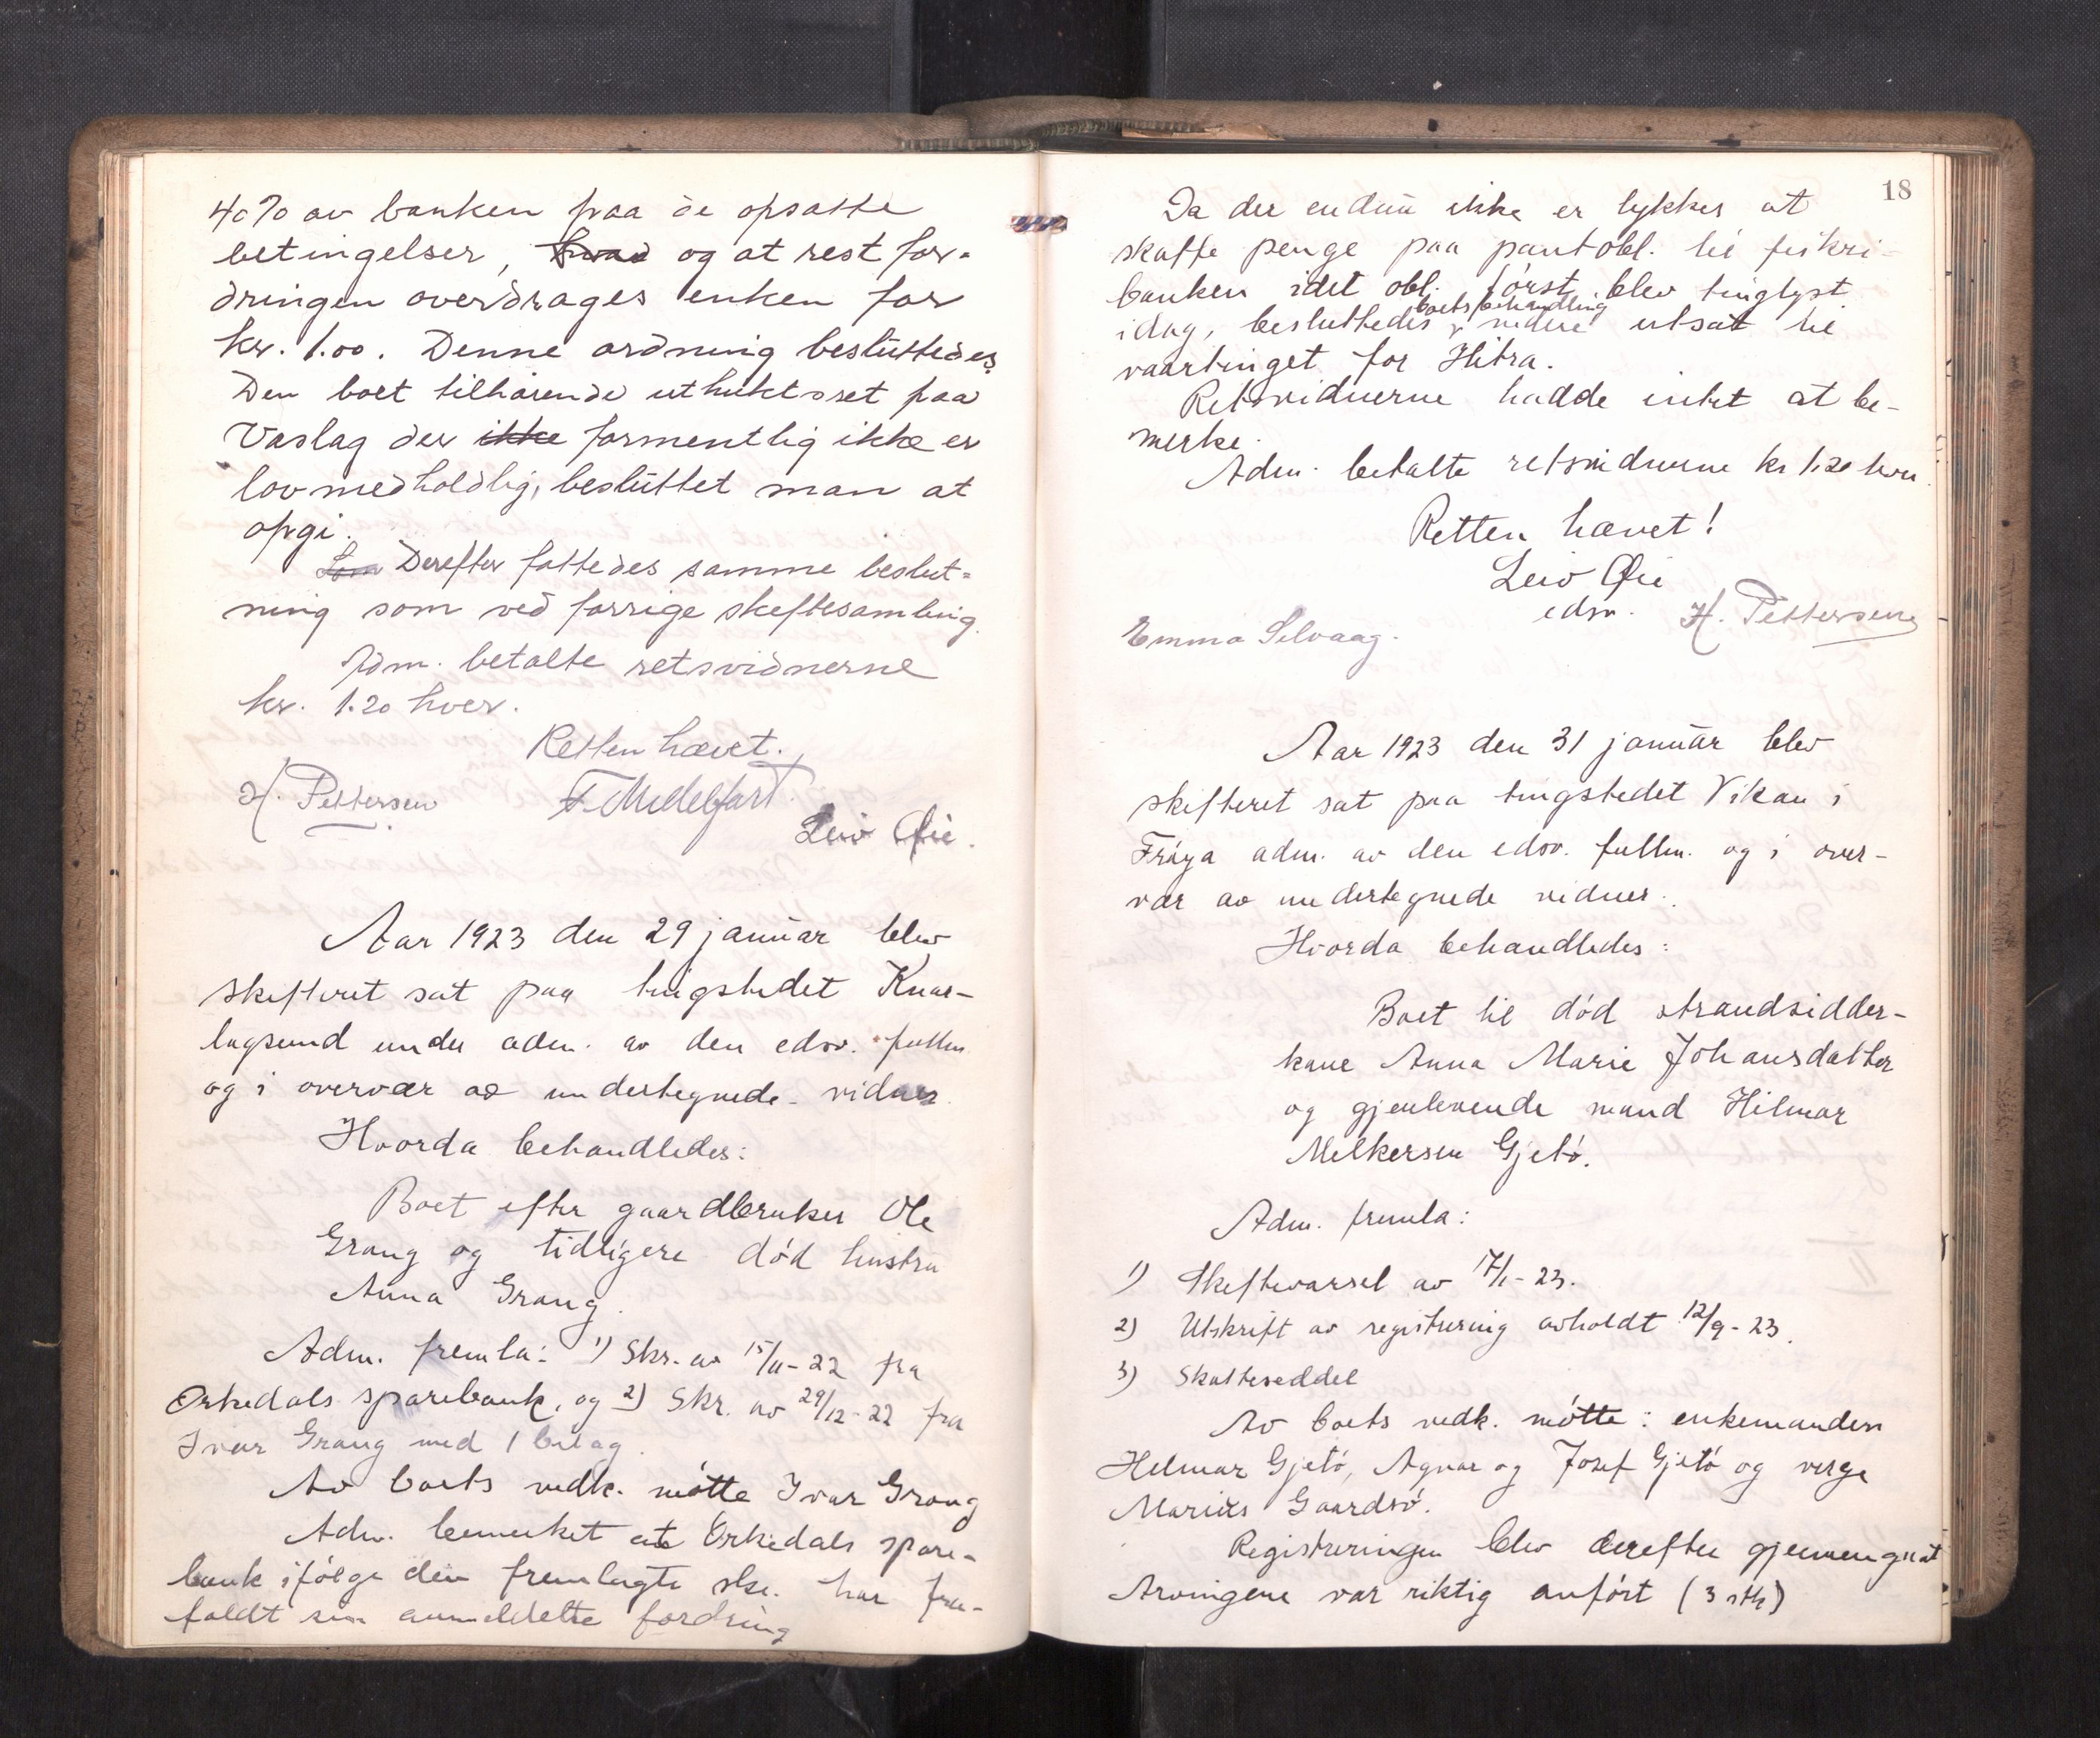 40% av banken paa de opsatte
betingelser, hvad og at rest for-
dringen overdrages enken for
kr. 1.00. Denne ordning besluttedes
Den boet tilhørende uthuktsret paa
Vaslag der ikke formentlig ikke er
lovmedholdlig, besluttet man at
opgi.
Som Derefter fattedes samme beslut-
ning som ved forrige skiftesamling.
Adm. betalte retsvidnerne
kr. 1.20 hver.
Retten hævet.
H. Pettersen F. Midelfart
Leiv Øie.
Aar 1923 den 29 januar blev
skifteret sat paa tingstedet Knar-
lagsund under adm. av den edsv. fullm
og i overvær av undertegnede vidner
Hvorda behandledes:
Boet efter gaardbruker Ole
Grang og tidligere død hustru
Anna Grang.
Adm. fremla: 1) Skr. av 15/11-22 fra
Orkedals sparebank, og 2) Skr. av 29/12-22 fra
Ivar Grang med 1 bilag.
Av boets vedk. møtte Ivar Grang
Adm. bemerket at Orkedals spare-
bank ifølge den fremlagte skr. har fra-
faldt sin anmeldelte fordring
18
Da der endnu ikke er lykkes at
skaffe penge paa pantobl. til fiskeri-
banken idet obl. først blev tinglyst
boets behandling
idag, besluttedes videre utsat til
vaartinget for Hitra.
Retsvidnerne hadde intet at be-
merke.
Adm. betalte retsvidnerne kr 1.20 hver.
Retten hævet!
Leiv Øie
edsv. H. Pettersen
Emma Selvaag.
Aar 1923 den 31 januar blev
skifteret sat paa tingstedet Vikan i
Frøya adm. av den edsv. fullm. og i over-
vær av undertegnede vidner.
Hvorda behandledes:
Boet til død strandsidder-
kone Anna Marie Johansdatter
og gjenlevende mand Hilmar
Melkersen Gjetø.
Adm. fremla:
1) Skiftevarsel av 17/1-23.
2) Utskrift av registrering avholdt 12/9-23.
3) Skatteseddel
Av boets vedk. møtte: enkemanden
Helmar Gjetø, Agnar og Josef Gjetø og verge
Marius Gaardsø.
Registreringen blev derefter gjennemgaat
Arvingene var riktig anført (3 stk)